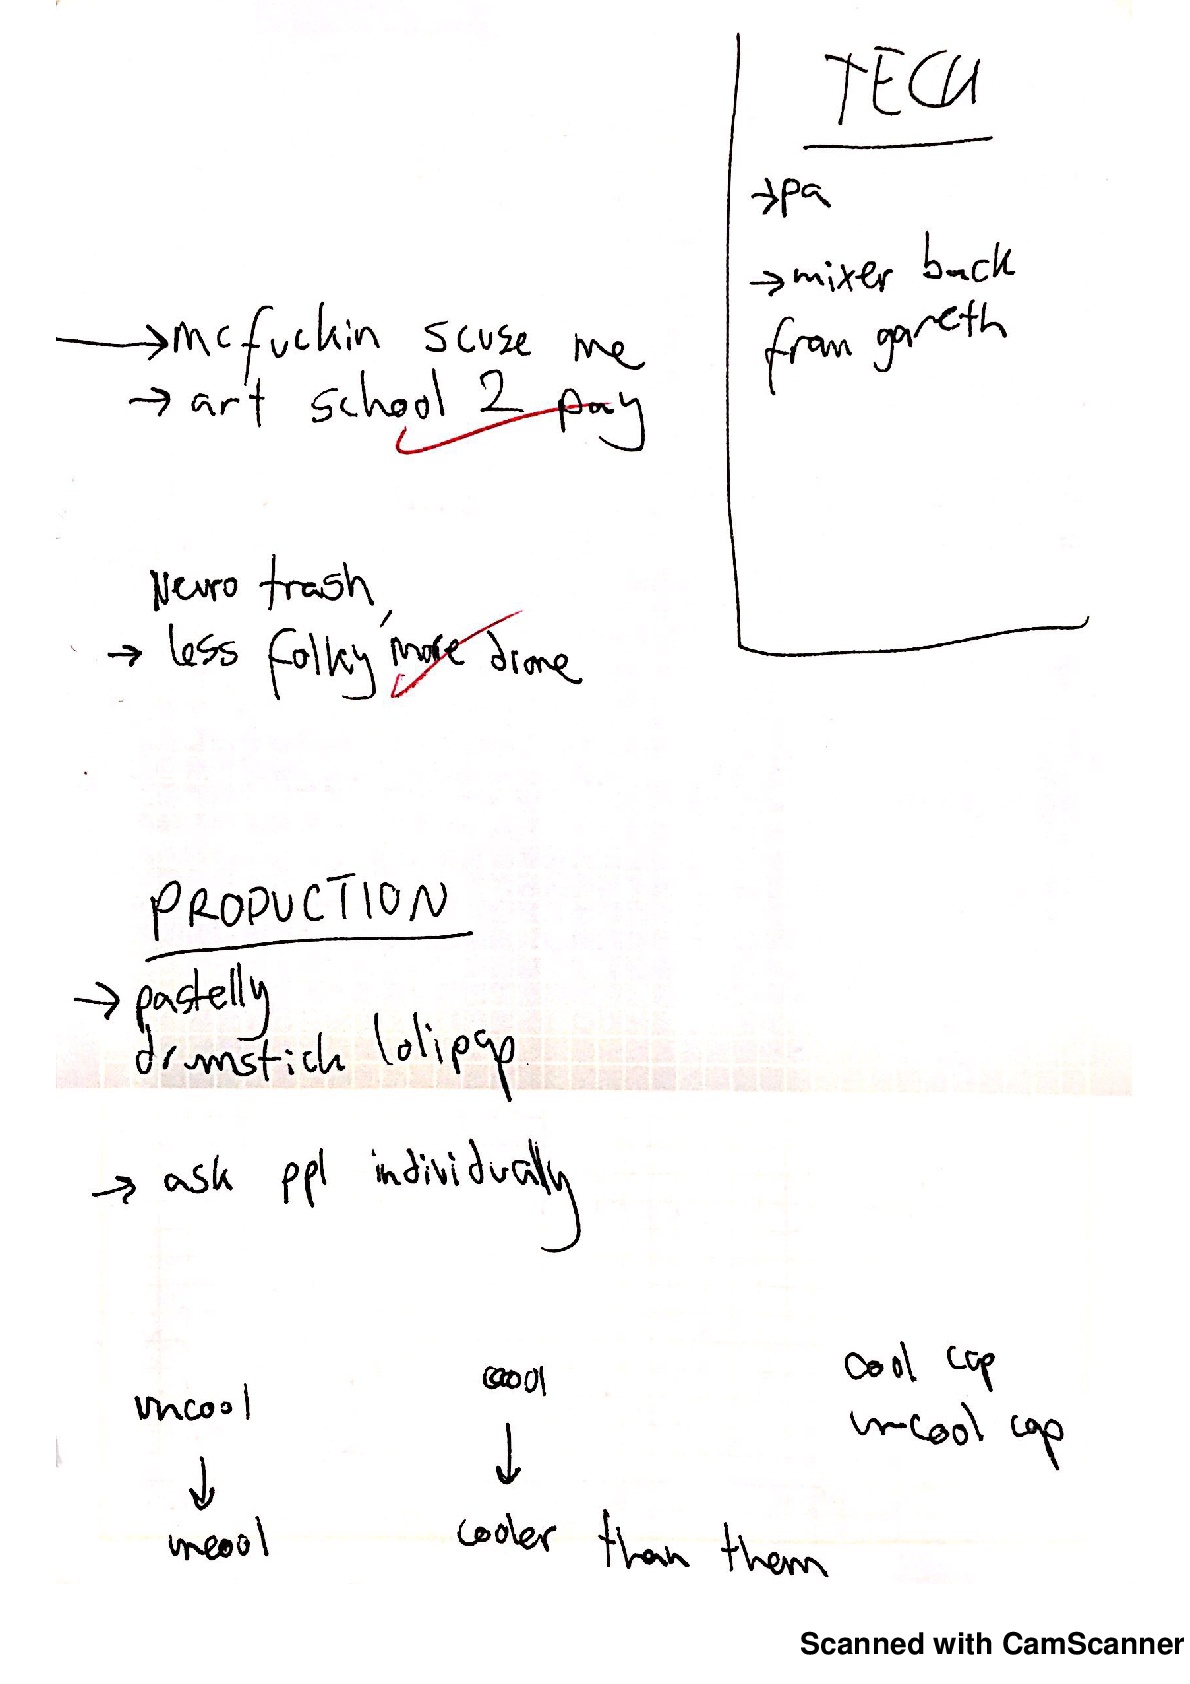 TECH
→pa
→mixer back
from gareth
→mcfuckin scuse me
→ art school 2 pay
Neuro trash,
→ less folky more drone
PRODUCTION
→ pastelly
drumstick lolipop
→ ask ppl individually
uncool
↓
uncool
cool
↓
cooler than them
cool cap
uncool cap
Scanned with CamScanner